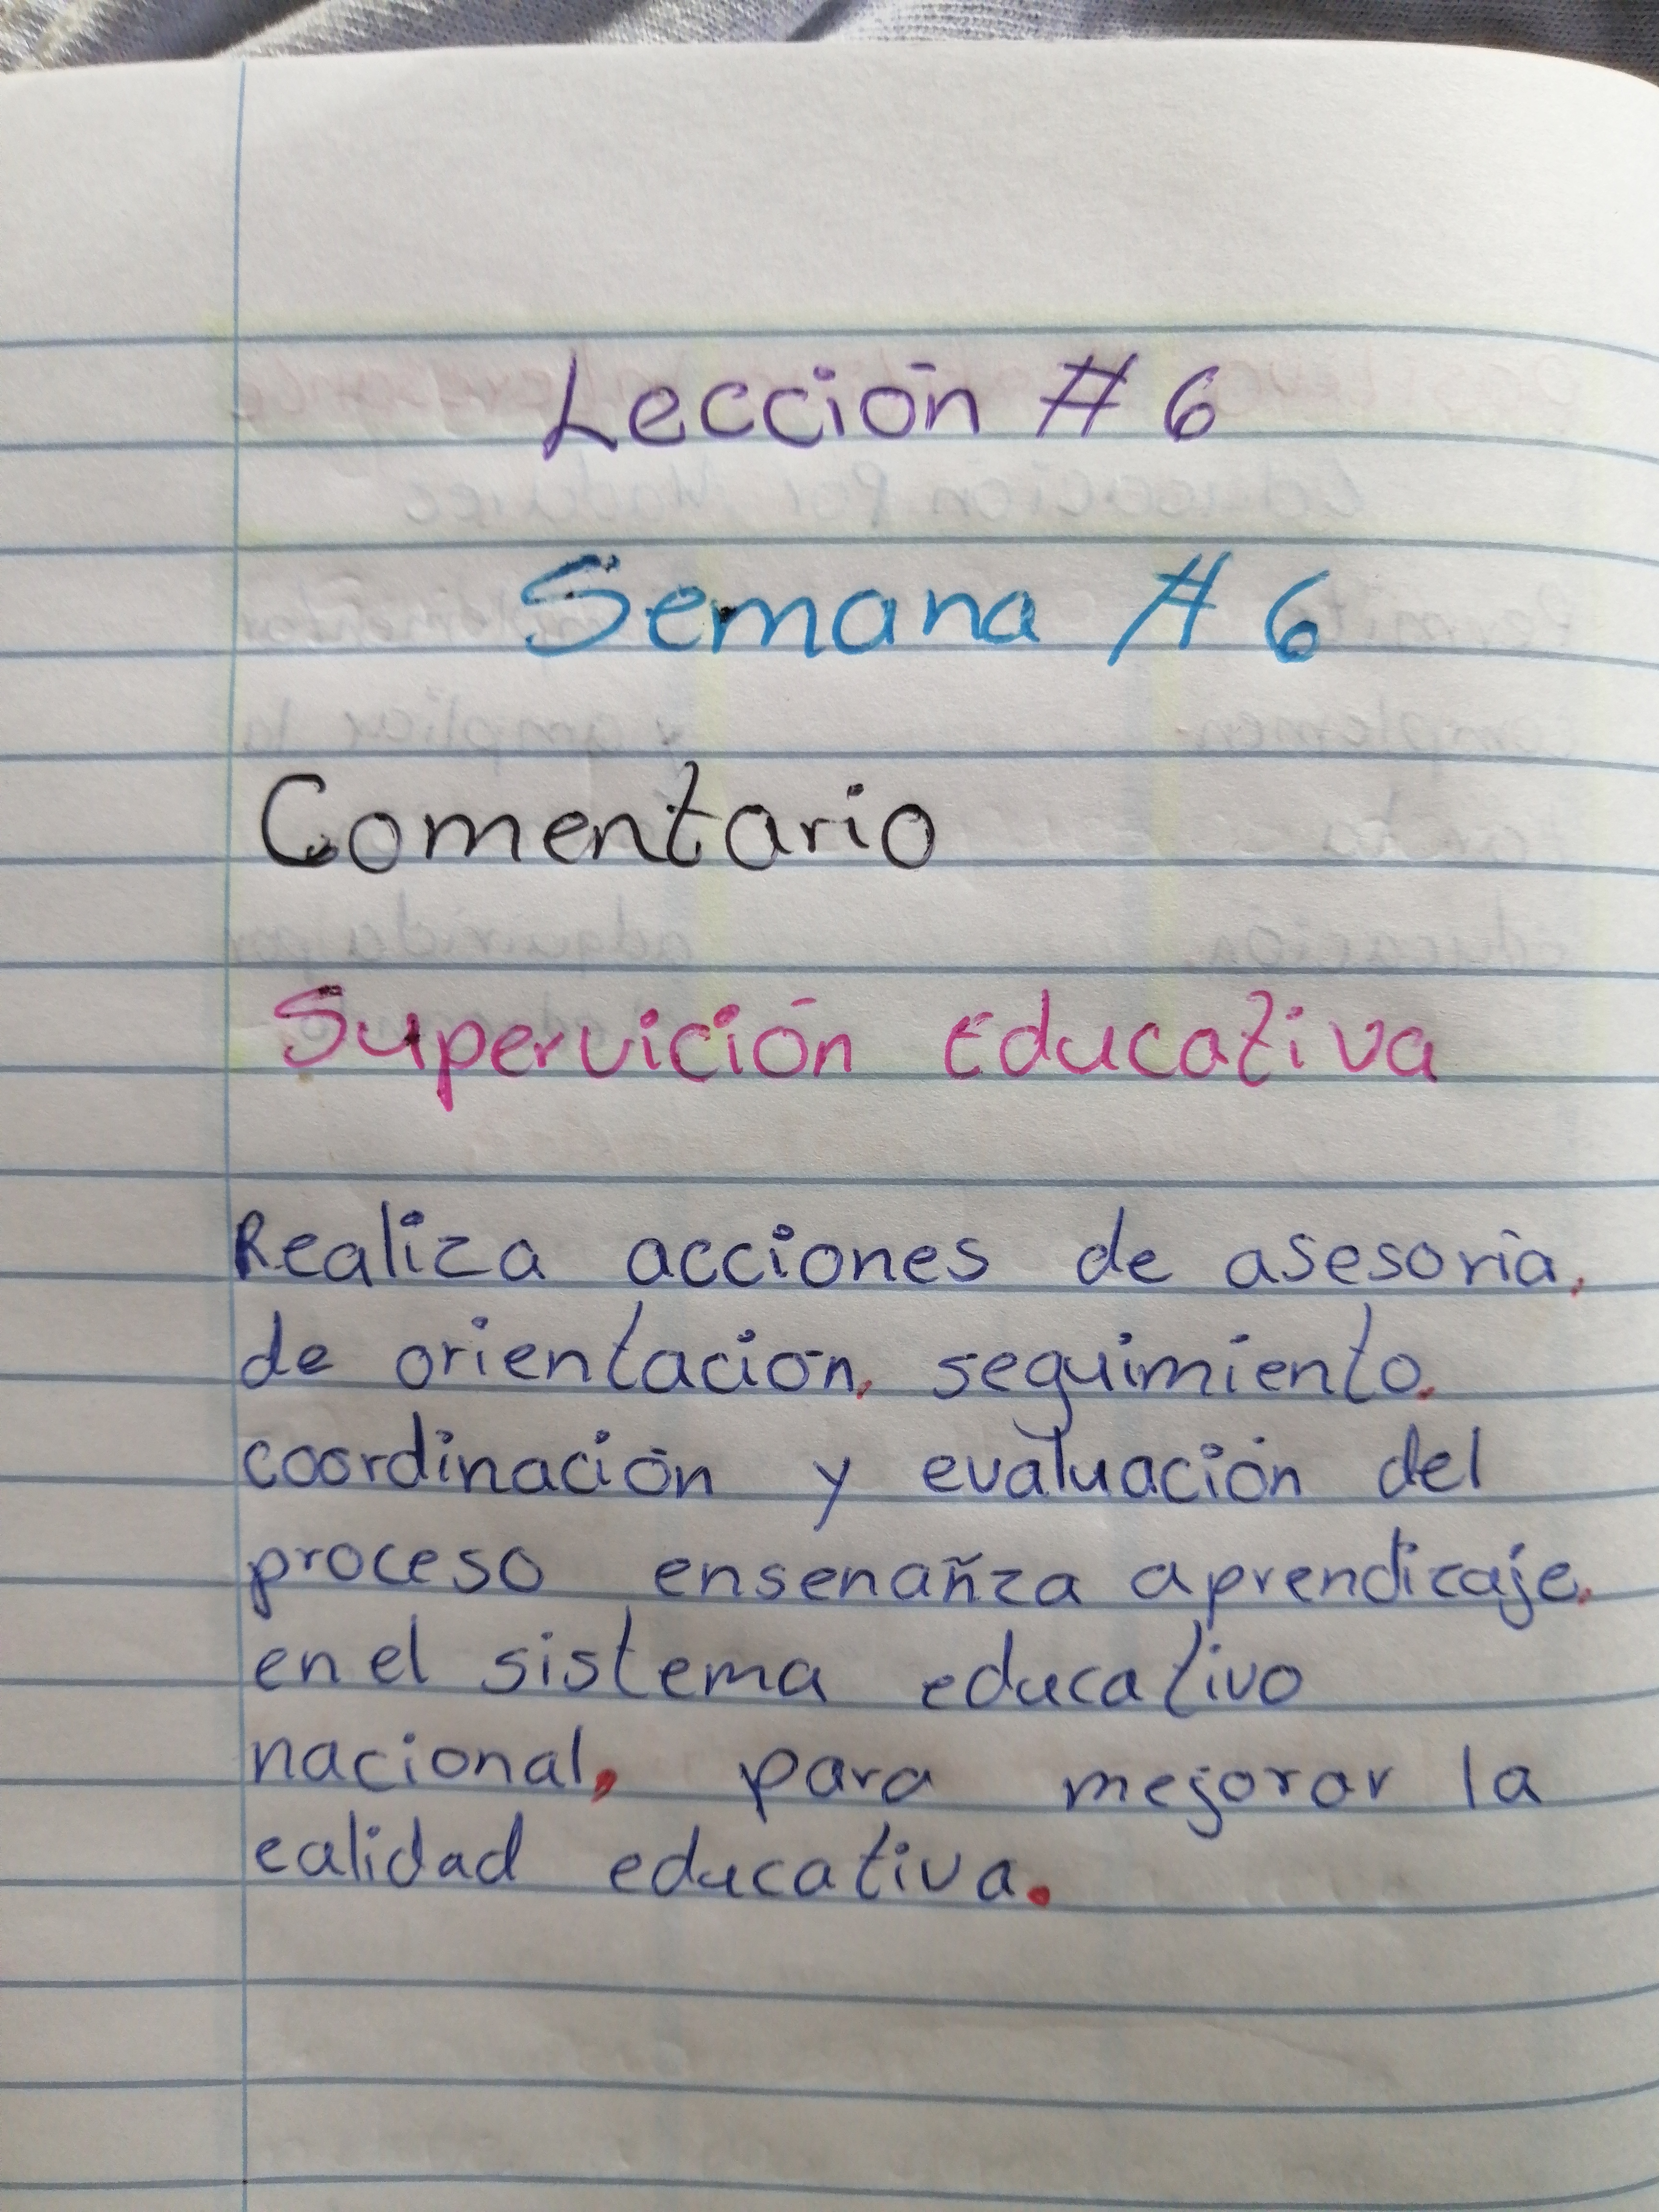 Lección # 6
Semana # 6
Comentario
Supervición Educativa
Realiza acciones de asesoría,
de orientación, seguimiento,
coordinación y evaluación del
proceso ensenañza aprendizaje,
en el sistema educativo
nacional, para mejorar la
calidad educativa.